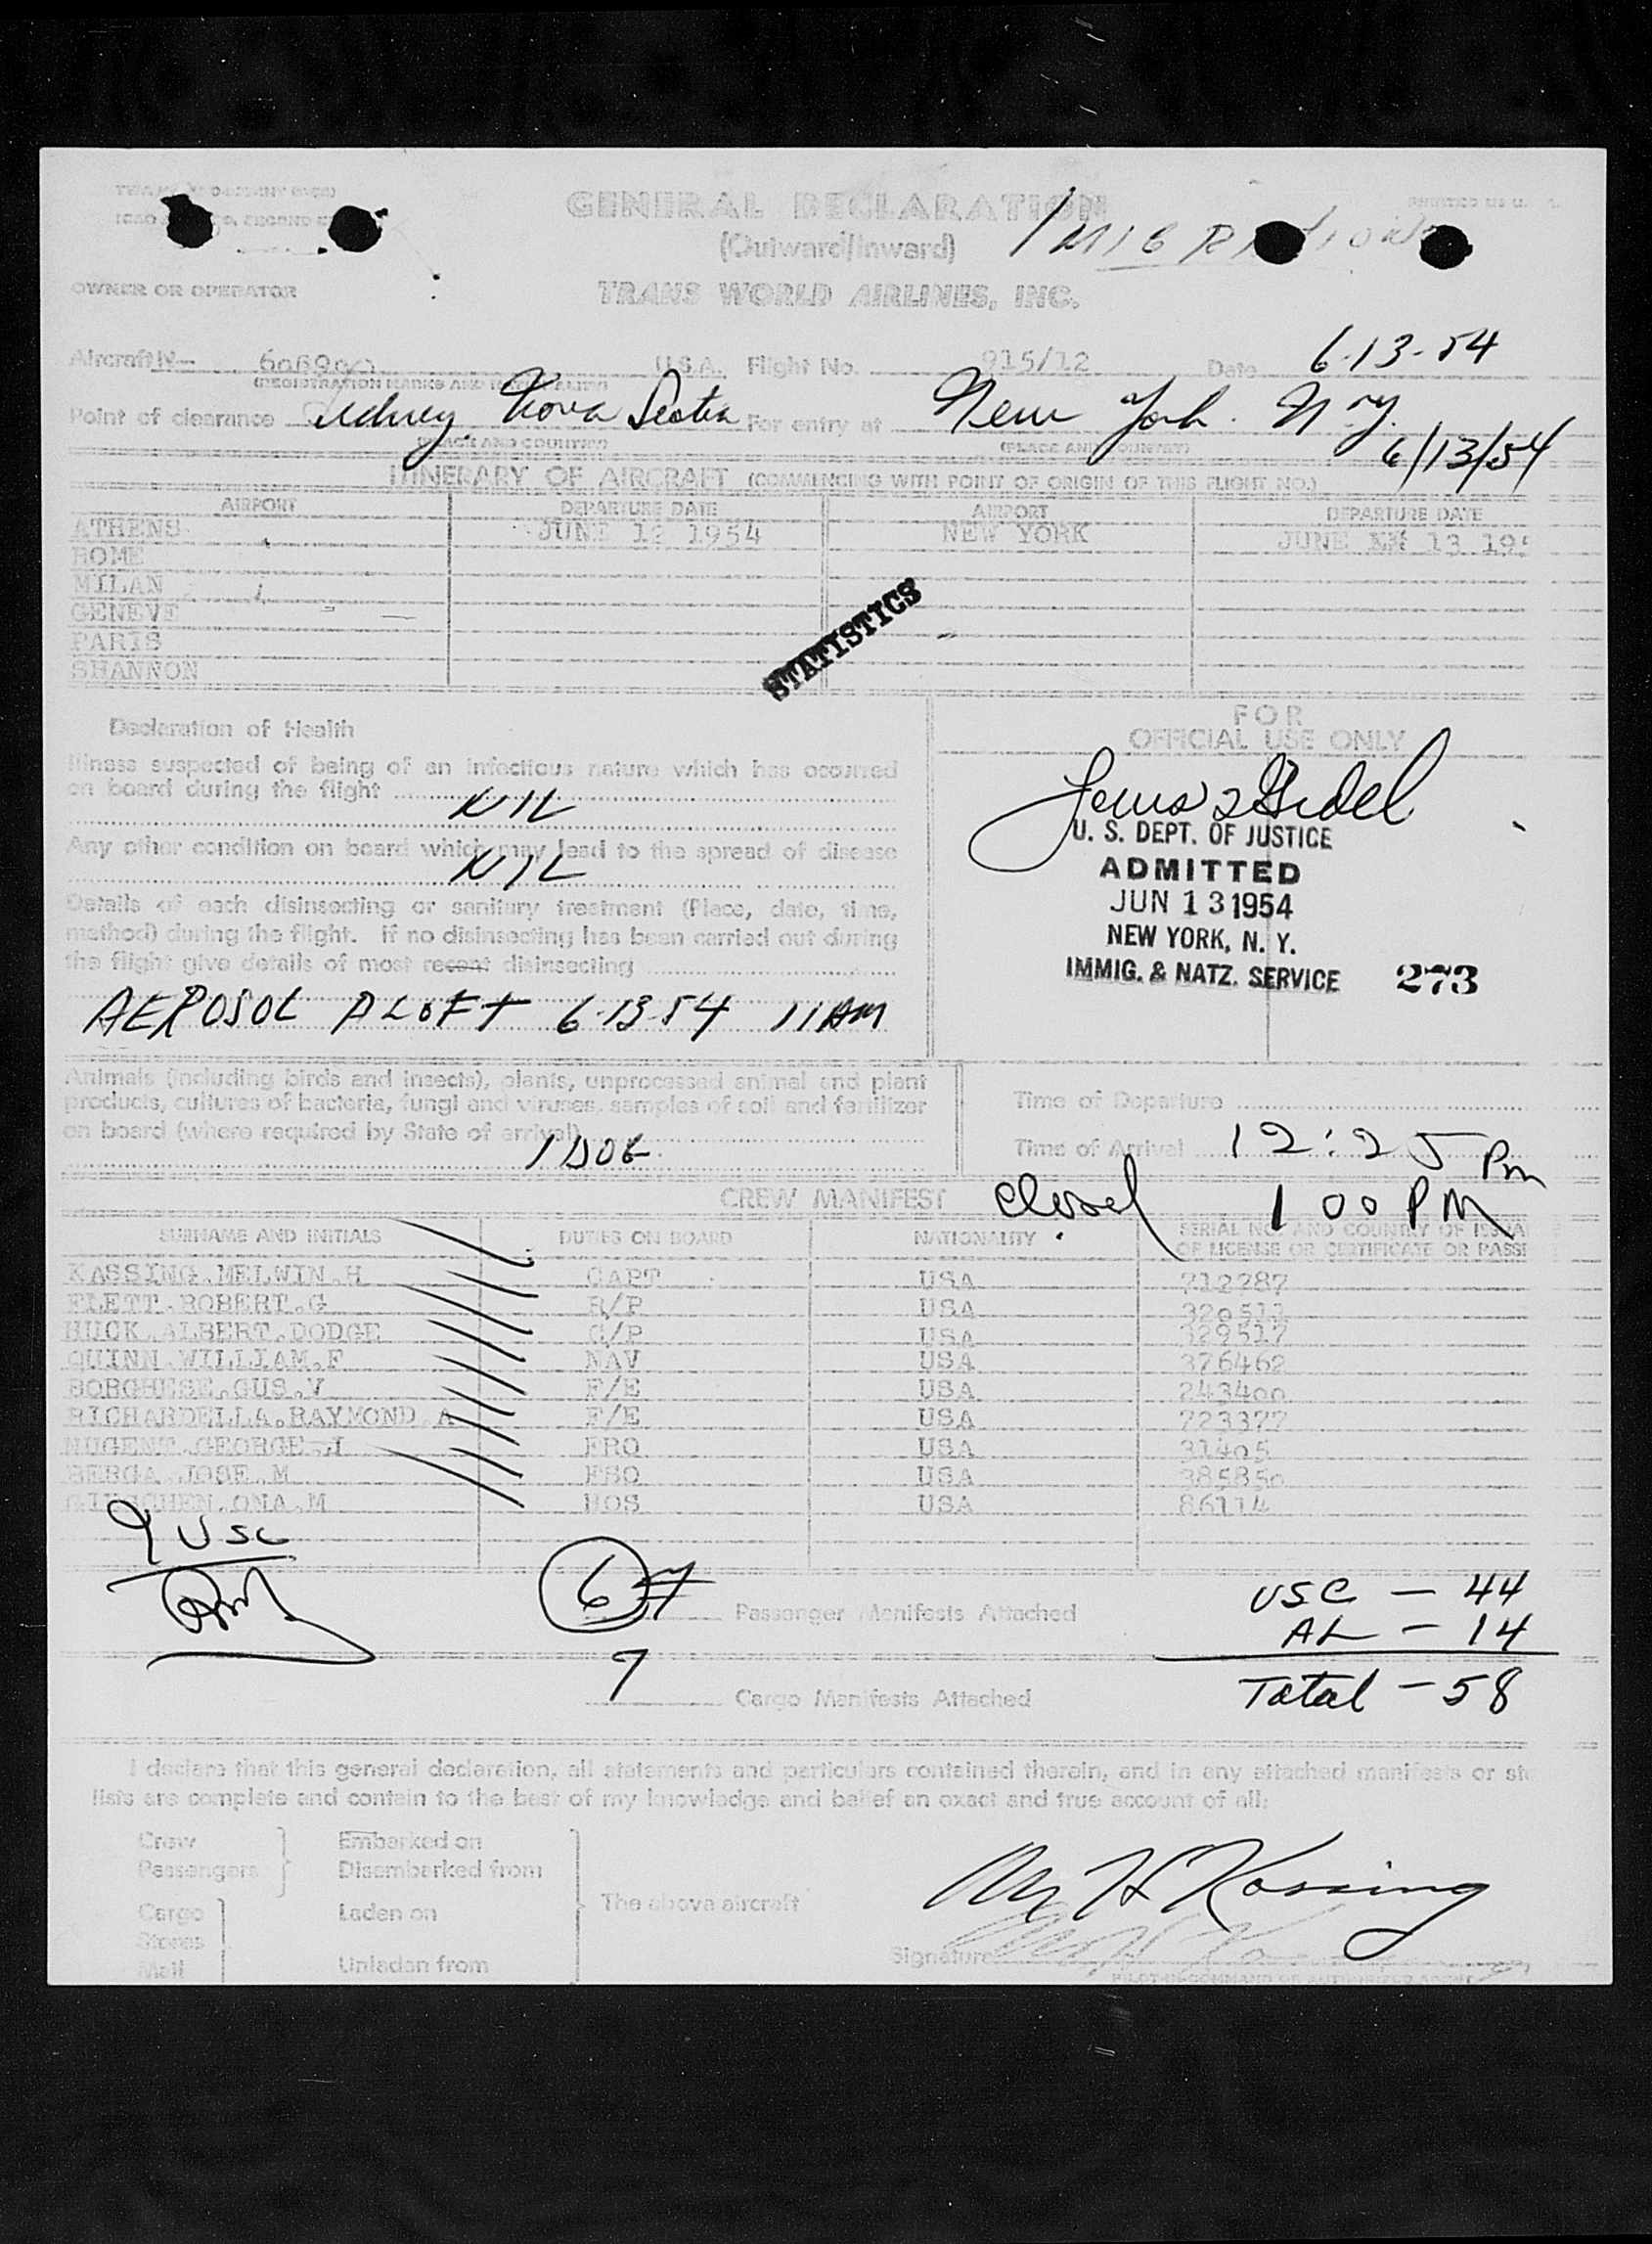 GENERAL DECLARATION
(Outward/Inward)
IMIGRATION
OWNER OR OPERATOR
TRANS WORLD AIRLINES, INC.
Aircraft N- U.S.A. Flight No. 915/12 Date 6-13-54
(REGISTRATION MARKS AND NATIONALITY)
Point of clearance Sidney Nova Scotia For entry at New York. N.Y.
(PLACE AND COUNTRY) (PLACE AND COUNTRY) 6/13/54
ITINERARY OF AIRCRAFT (COMMENCING WITH POINT OF ORIGIN OF THIS FLIGHT NO.)
AIRPORT DEPARTURE DATE AIRPORT DEPARTURE DATE
ATHENS JUNE 12 1954 NEW YORK JUNE 13 195
ROME
MILAN
GENEVE
PARIS
SHANNON
STATISTICS
Declaration of Health
Illness suspected of being of an infectious nature which has occurred
on board during the flight NIL
Any other condition on board which may lead to the spread of disease
NIL
Details of each disinsecting or sanitary treatment (Place, date, time,
method) during the flight. If no disinsecting has been carried out during
the flight give details of most recent disinsecting
AEROSOL ALOFT 6-13-54 11AM
FOR
OFFICIAL USE ONLY
U. S. DEPT. OF JUSTICE
ADMITTED
JUN 13 1954
NEW YORK, N. Y.
IMMIG. & NATZ. SERVICE 273
Animals (including birds and insects), plants, unprocessed animal and plant
products, cultures of bacteria, fungi and viruses, samples of soil and fertilizer
on board (where required by State of arrival)
1 DOG
Time of Departure
Time of Arrival 12:25 Pm
closed 1 00 PM
CREW MANIFEST
SURNAME AND INITIALS DUTIES ON BOARD NATIONALITY SERIAL NO. AND COUNTRY OF ISSUA
OF LICENSE OR CERTIFICATE OR PASSP
KASSING.MELWIN.H CAPT USA 712287
FLETT.ROBERT.G R/P USA 320513
HUCK.ALBERT.DODGE C/P USA 329517
QUINN.WILLIAM.F NAV USA 376462
BORGHESE.GUS.V F/E USA 243400
RICHARDELLA.RAYMOND A F/E USA 723377
NUGENT.GEORGE.J FRO USA 31405
BERGA.JOSE.M FSO USA 385850
ONA.M HOS USA 86114
9 USC
6 7 Passenger Manifests Attached
USC - 44
AL - 14
7 Cargo Manifests Attached
Total - 58
I declare that this general declaration, all statements and particulars contained therein, and in any attached manifests or sto
lists are complete and contain to the best of my knowledge and belief an exact and true account of all:
Crew Embarked on
Passengers Disembarked from
Cargo Laden on
Stores
Mail Unladen from
The above aircraft
M H Kassing
Signature
PILOT-IN-COMMAND OR AUTHORIZED AGENT